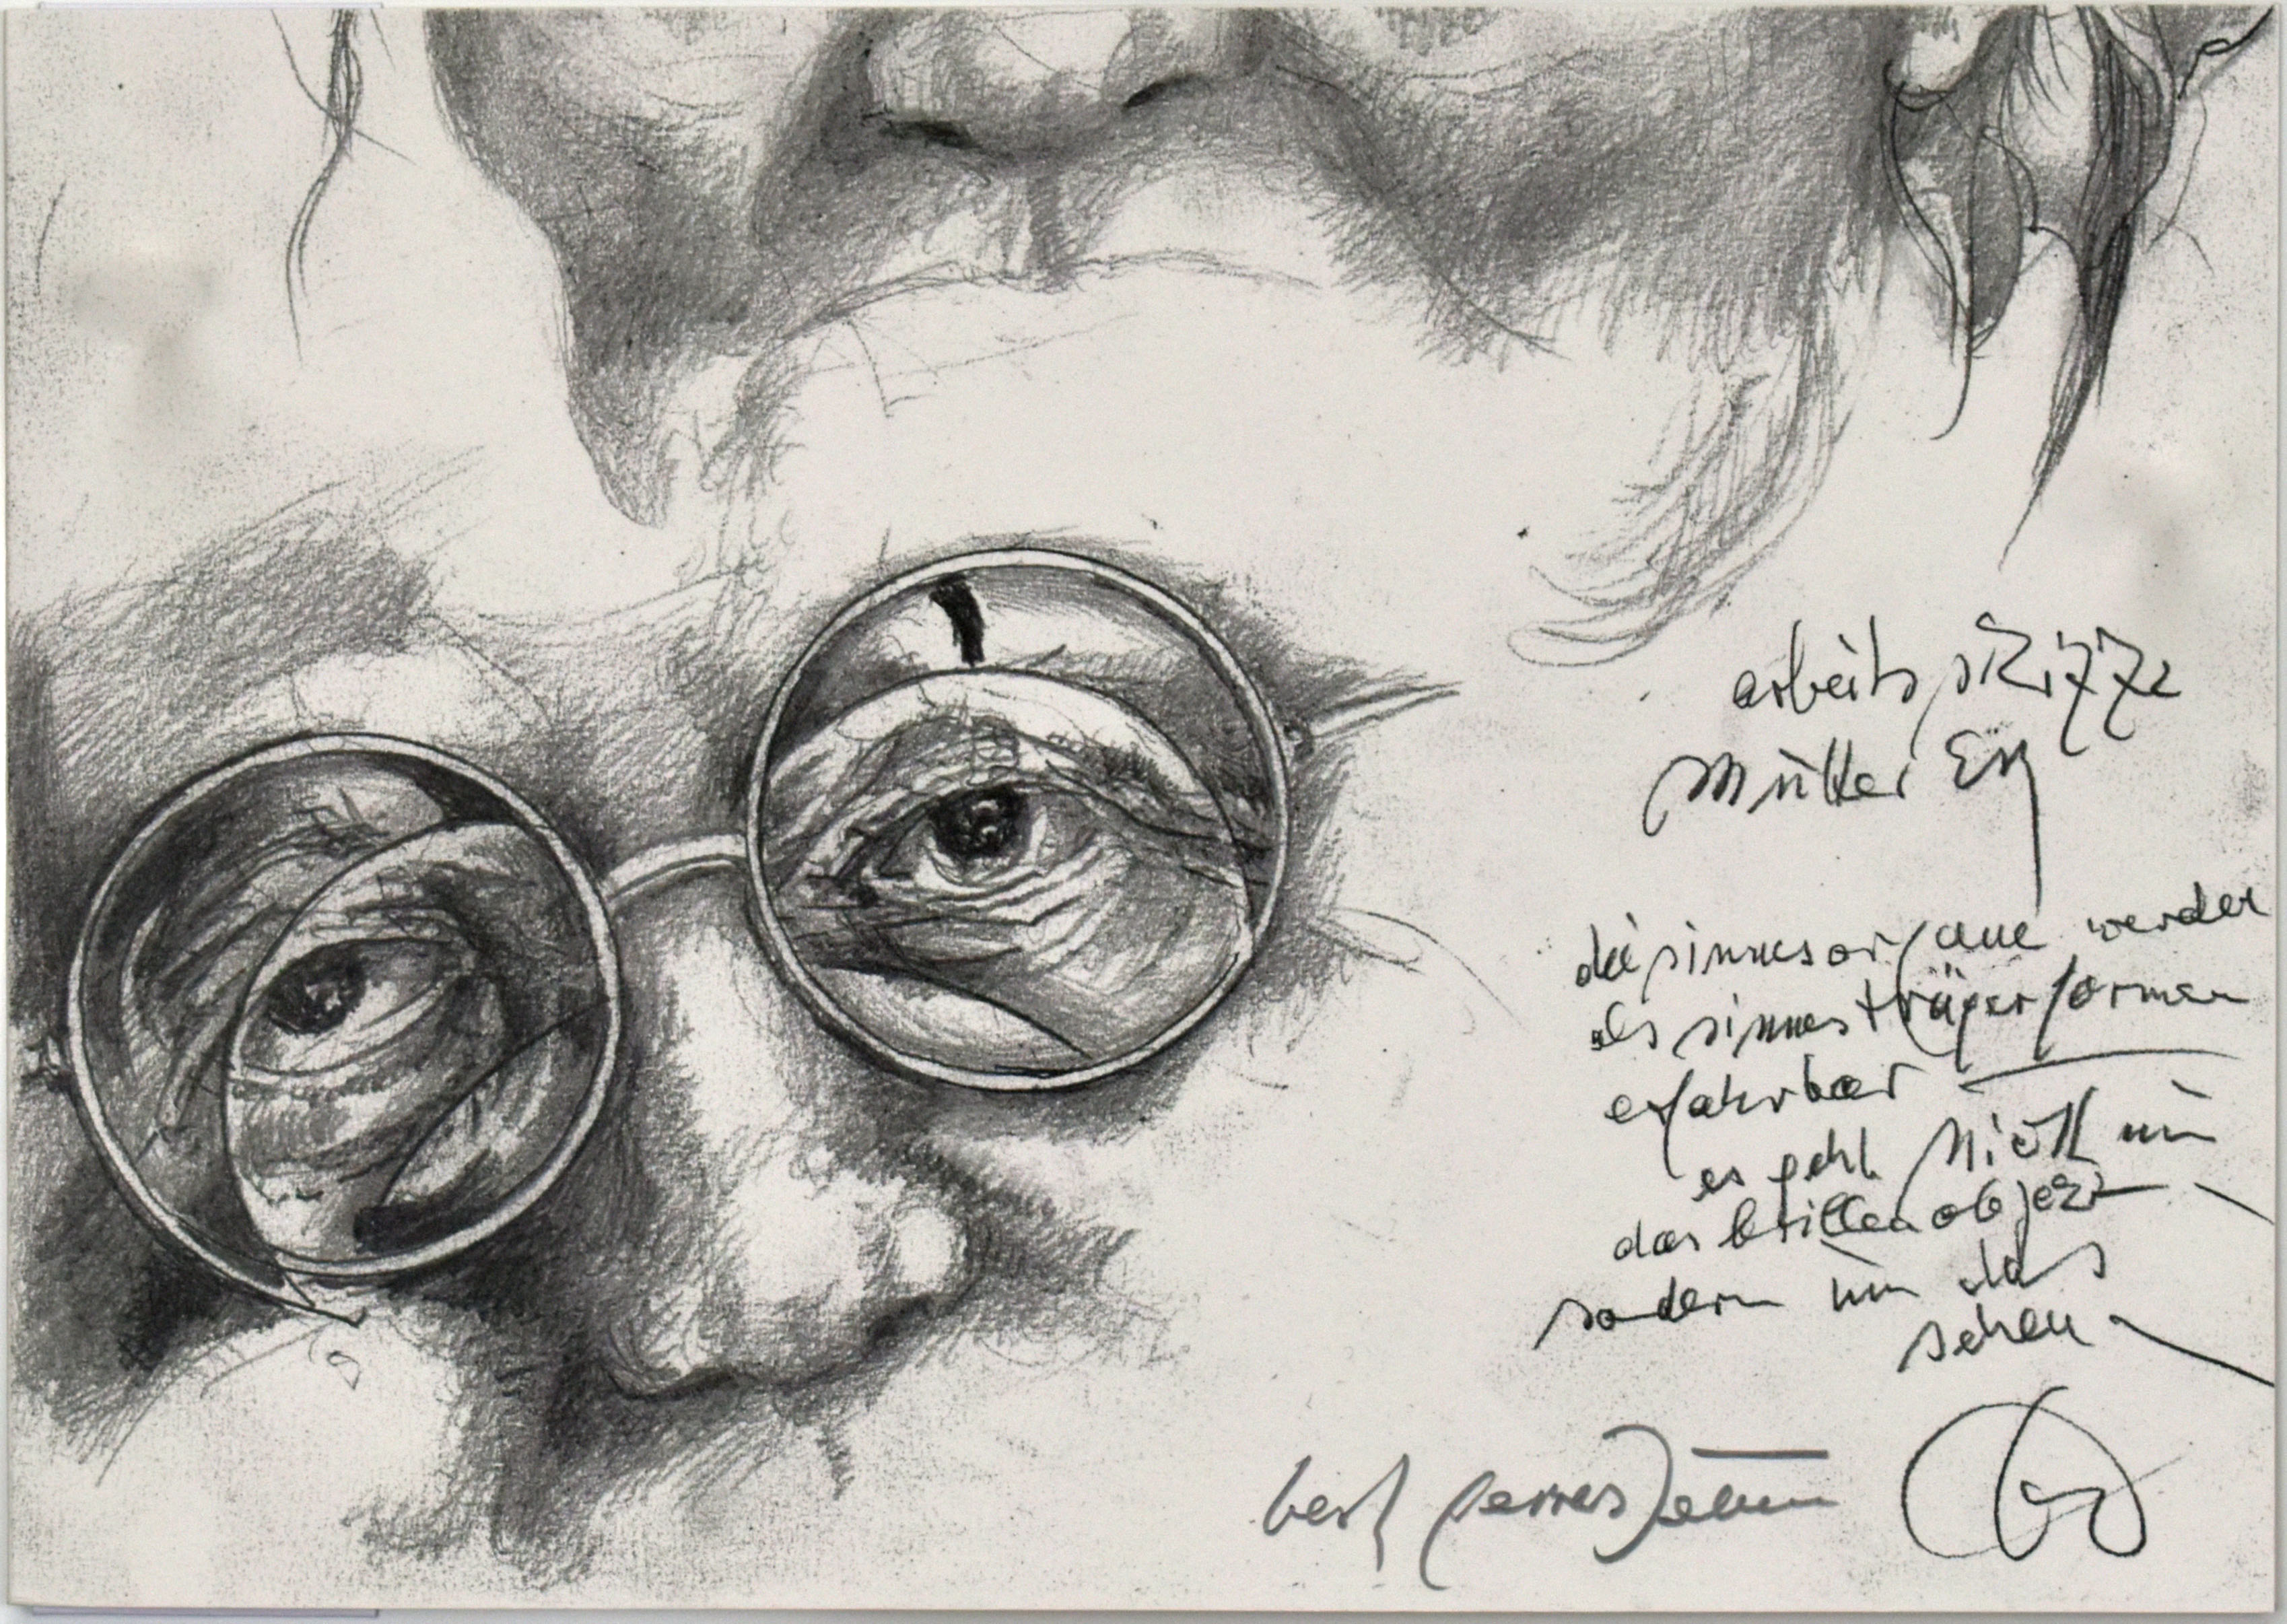 arbeitsskizze
Müller Erz
die sinnesorgane werden
als sinnesträgerformen
erfahrbar
es geht nicht um
das brillenobjekt
sondern um das
sehen